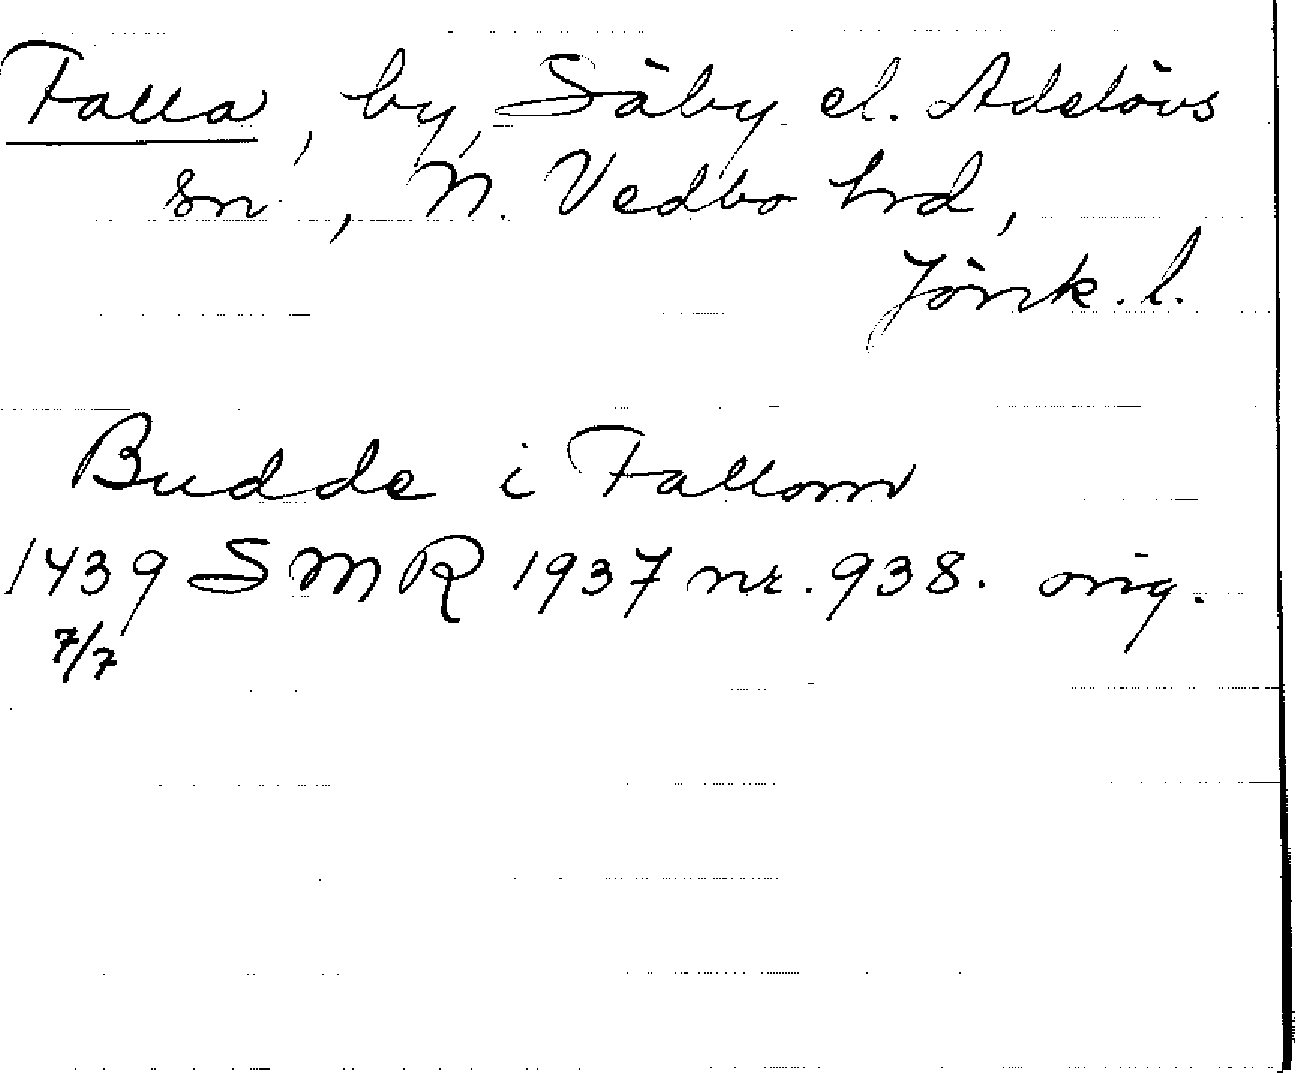 Falla, by, Säby el. Adelövs
sn, N. Vedbo hrd,
Jönk. l.
Budde i Fallom
1439 SMR 1937 nr. 938. orig.
7/7